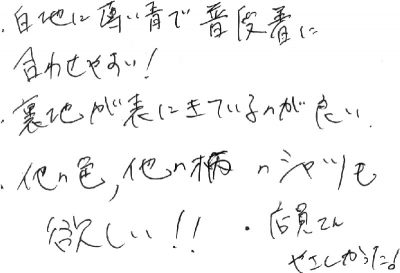 ・白地に薄い青で普段着に
合わせやすい!
・裏地が表にきているのが良い.
・他の色,他の柄のシャツも
欲しい!!・店員さん
やさしかった!